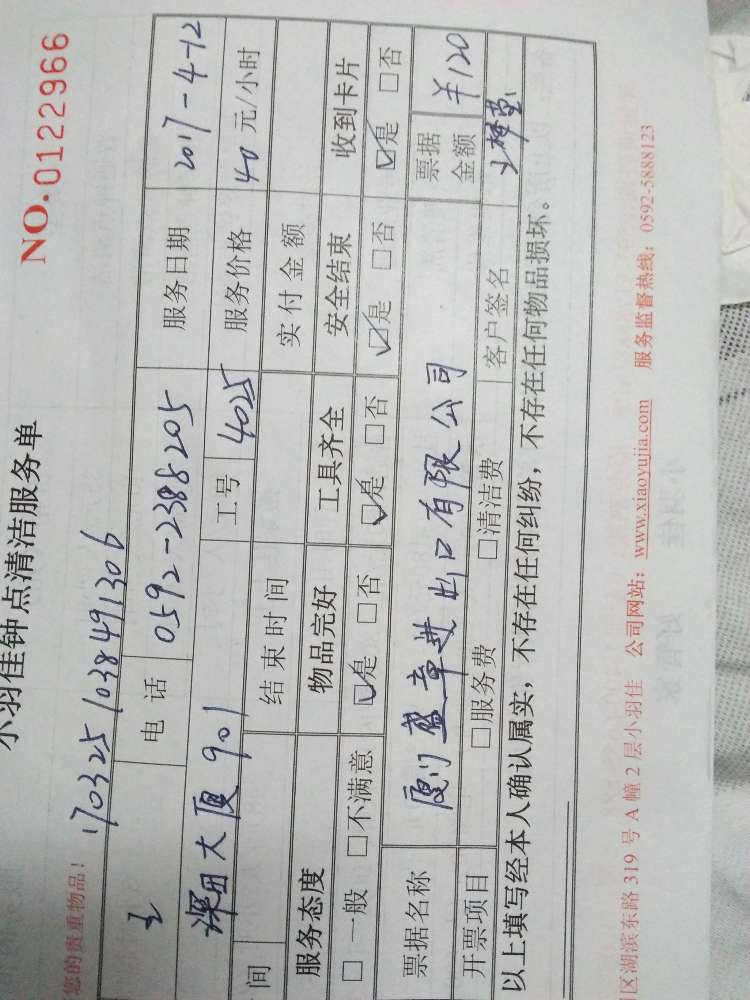 小羽佳钟点清洁服务单
NO.0122966
您的贵重物品! 170325 1038491306
电话 0592-2388205 服务日期 2017-4-12
深田大厦901 工号 4025 服务价格 40元/小时
间 结束时间 实付金额
服务态度 物品完好 工具齐全 安全结束 收到卡片
□一般 □不满意 ☑是 □否 ☑是 □否 ☑是 □否 ☑是 □否
票据名称 厦门盛章进出口有限公司 票据金额 ¥120
开票项目 □服务费 □清洁费 客户签名
以上填写经本人确认属实,不存在任何纠纷,不存在任何物品损坏。
区湖滨东路319号A幢2层小羽佳 公司网站:www.xiaoyujia.com 服务监督热线:0592-5888123